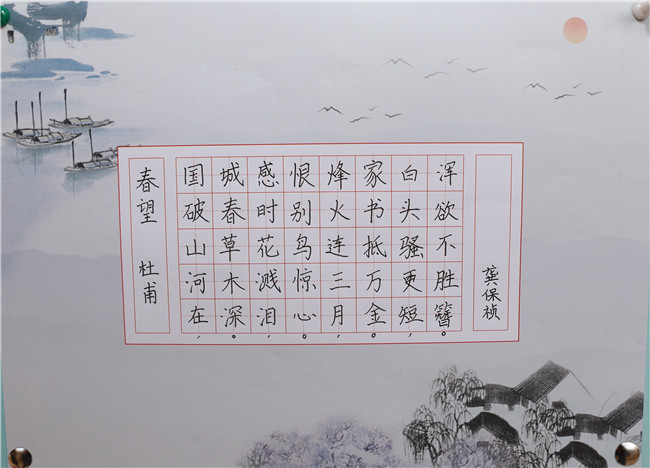 春望 杜甫
国破山河在，
城春草木深。
感时花溅泪，
恨别鸟惊心。
烽火连三月，
家书抵万金。
白头骚更短，
浑欲不胜簪。
龚保祯